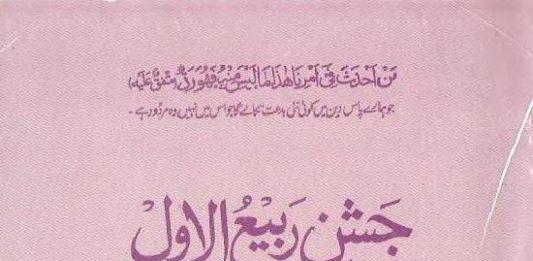 مَنْ اَحْدَثَ فِیْ اَمْرِنَا هٰذَا مَا لَیْسَ مِنْهُ فَهُوَ رَدٌّ (متفق علیه)
جو ہمارے پاس دین میں کوئی نئی بدعت نکالے گا جو اس میں نہیں وہ مردُود ہے ۔
جَشنِ رَبیعُ الاوّلْ